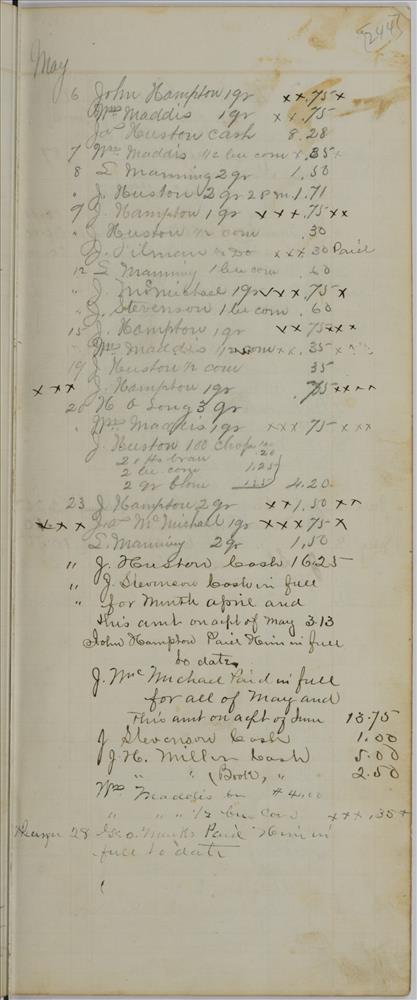 244
May
6 John Hampton 1 gr xx .75 x
Wm Maddis 1 gr x x .75
Jas Heuston Cash 8.28
7 Wm Maddis 1/2 bu corn x .35 x
8 L Manning 2 gr 1.50
" J. Heuston 2 gr 28 m. 1.71
9 J. Hampton 1 gr x x x .75 x x
" J Heuston 1/2 corn .30
J. Tilman " Do x x x 30 Paid
12 L Manning 1 bu corn .60
" J. McMichael 1 gr x x x .75 x
" J. Stevenson 1 bu corn .60
15 J. Hampton 1 gr x x 75 x x x
" Wm Maddis 1/2 corn x x .35 x x x
19 J Heuston 1/2 corn 35
x x x J. Hampton 1 gr .75 x x x x
20 H O Long 3 gr
" Wm Maddis 1 gr x x x 75 x x x
J. Heuston 100 chops
20 lbs bran .20
2 bu corn 1.25
2 gr 4.20
23 J Hampton 2 gr x x 1.50 x x
x x x Jas McMichael 1 gr x x x 75 x
L. Manning 2 gr 1.50
" J. Heuston Cash 16.25
" J. Stevenson Cash in full
" for Month April and
this amt on acpt of May 3.13
John Hampton Paid Him in full
to date
J. McMichael Paid in full
for all of May and
This amt on acpt of June 13.75
J Stevenson Cash 1.00
J. H. Miller Cash 5.00
" " (Book) " 2.50
Wm Maddis on $4.00
" " " 1/2 bu Corn x x x .35 x
28 Geo. Paid Him in
full to date